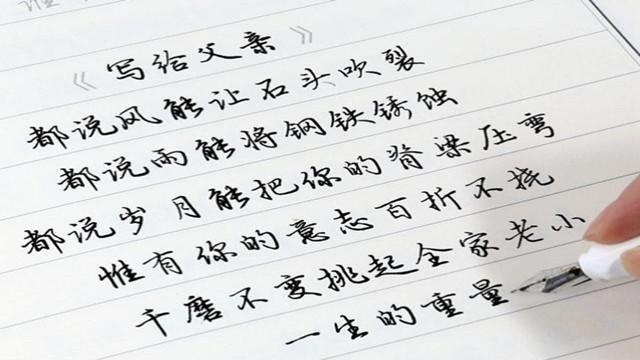 《写给父亲》
都说风能让石头吹裂
都说雨能将钢铁锈蚀
都说岁月能把你的脊梁压弯
惟有你的意志百折不挠
千磨不变挑起全家老小
一生的重量